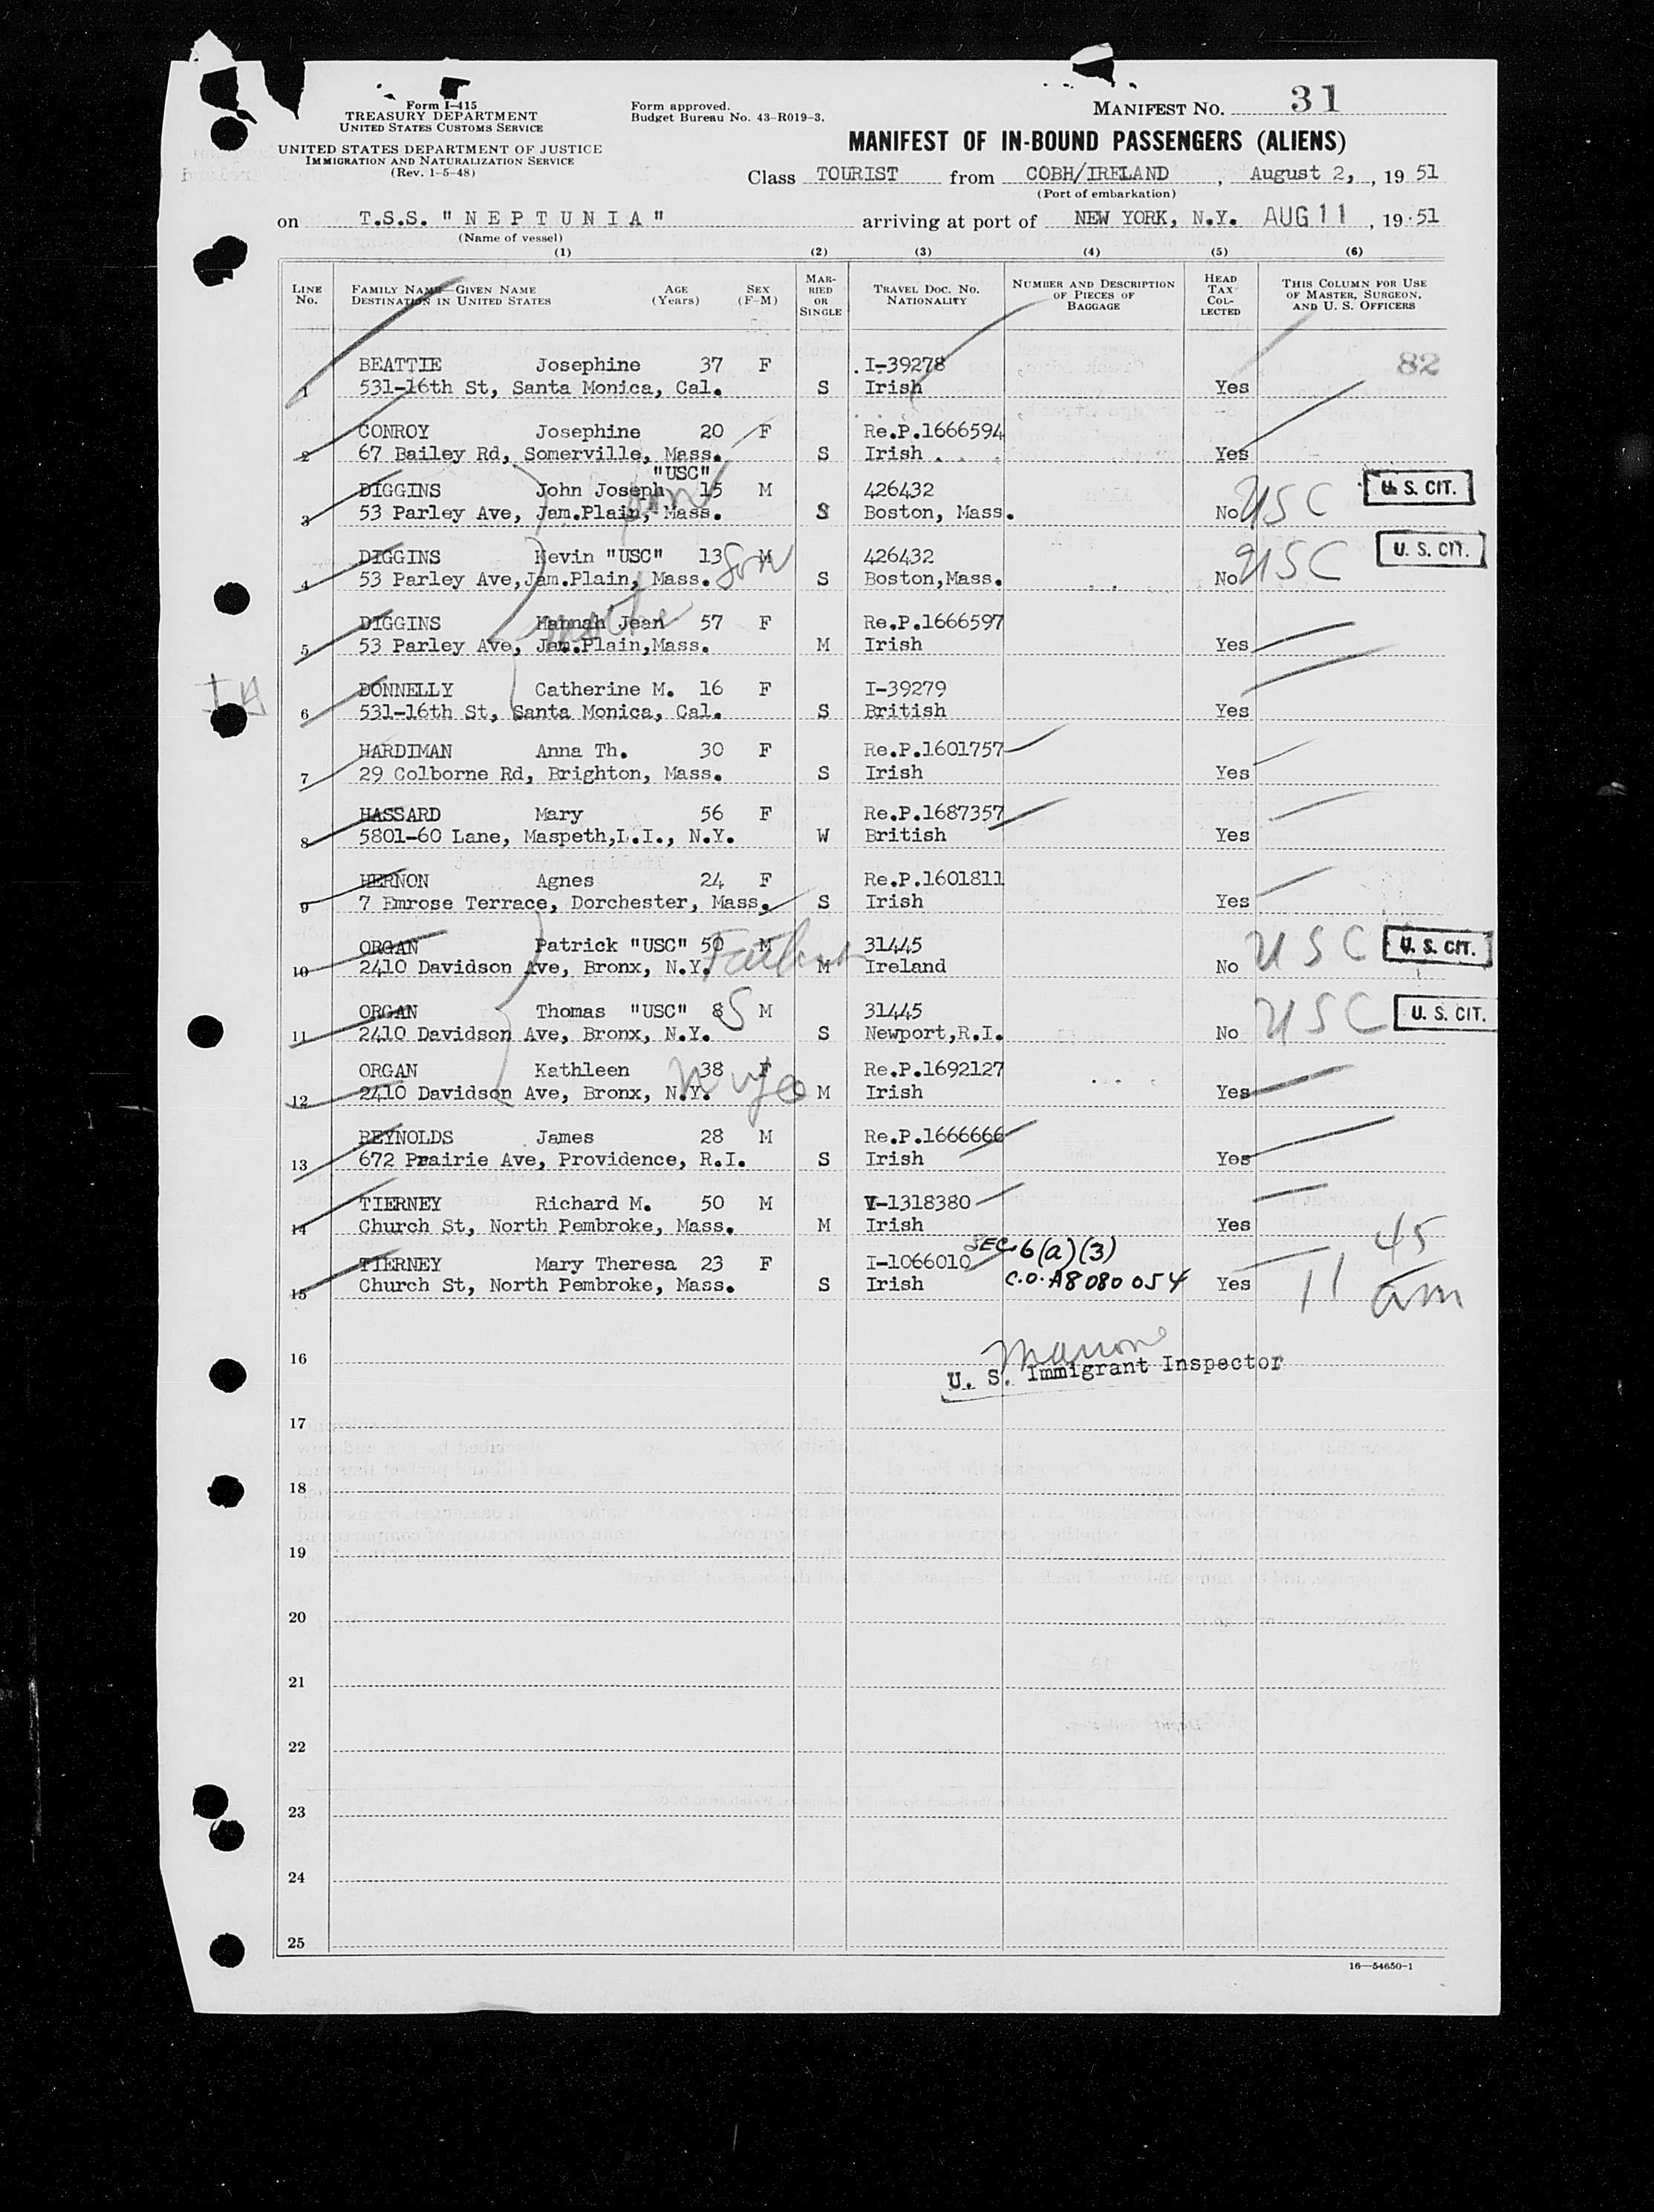 Form I-415
TREASURY DEPARTMENT
UNITED STATES CUSTOMS SERVICE
UNITED STATES DEPARTMENT OF JUSTICE
IMMIGRATION AND NATURALIZATION SERVICE
(Rev. 1-5-48)
Form approved.
Budget Bureau No. 43-R019-3.
MANIFEST NO. 31
MANIFEST OF IN-BOUND PASSENGERS (ALIENS)
Class TOURIST from COBH/IRELAND, August 2, , 19 51
(Port of embarkation)
on T.S.S. "NEPTUNIA" arriving at port of NEW YORK, N.Y. AUG 11 , 19 51
(Name of vessel)
(1) (2) (3) (4) (5) (6)
LINE No. FAMILY NAME—GIVEN NAME DESTINATION IN UNITED STATES AGE (Years) SEX (F-M) MARRIED OR SINGLE TRAVEL DOC. NO. NATIONALITY NUMBER AND DESCRIPTION OF PIECES OF BAGGAGE HEAD TAX COLLECTED THIS COLUMN FOR USE OF MASTER, SURGEON, AND U. S. OFFICERS
BEATTIE Josephine 37 F I-39278 82
1 531-16th St, Santa Monica, Cal. S Irish Yes
CONROY Josephine 20 F Re.P.1666594
2 67 Bailey Rd, Somerville, Mass. S Irish Yes
"USC"
DIGGINS John Joseph 15 M 426432 USC U. S. CIT.
3 53 Parley Ave, Jam.Plain, Mass. S Boston, Mass. No
DIGGINS Kevin "USC" 13 son M 426432 USC U. S. CIT.
4 53 Parley Ave,Jam.Plain, Mass. S Boston,Mass. No
DIGGINS Hannah Jean 57 F Re.P.1666597
mother
5 53 Parley Ave, Jam.Plain,Mass. M Irish Yes
DONNELLY Catherine M. 16 F I-39279
6 531-16th St, Santa Monica, Cal. S British Yes
HARDIMAN Anna Th. 30 F Re.P.1601757
7 29 Colborne Rd, Brighton, Mass. S Irish Yes
HASSARD Mary 56 F Re.P.1687357
8 5801-60 Lane, Maspeth,L.I., N.Y. W British Yes
HERNON Agnes 24 F Re.P.1601811
9 7 Emrose Terrace, Dorchester, Mass. S Irish Yes
ORGAN Patrick "USC" 50 M 31445 USC U. S. CIT.
Father
10 2410 Davidson Ave, Bronx, N.Y. M Ireland No
ORGAN Thomas "USC" 8 S M 31445 USC U. S. CIT.
11 2410 Davidson Ave, Bronx, N.Y. S Newport,R.I. No
ORGAN Kathleen 38 F Re.P.1692127
wife
12 2410 Davidson Ave, Bronx, N.Y. M Irish Yes
REYNOLDS James 28 M Re.P.1666666
13 672 Prairie Ave, Providence, R.I. S Irish Yes
TIERNEY Richard M. 50 M V-1318380
14 Church St, North Pembroke, Mass. M Irish Yes
TIERNEY Mary Theresa 23 F I-1066010 SEC. 6(a)(3) 11 45 am
15 Church St, North Pembroke, Mass. S Irish C.O. A8 080 054 Yes
16
U. S. Immigrant Inspector
17
18
19
20
21
22
23
24
25
16—54650-1